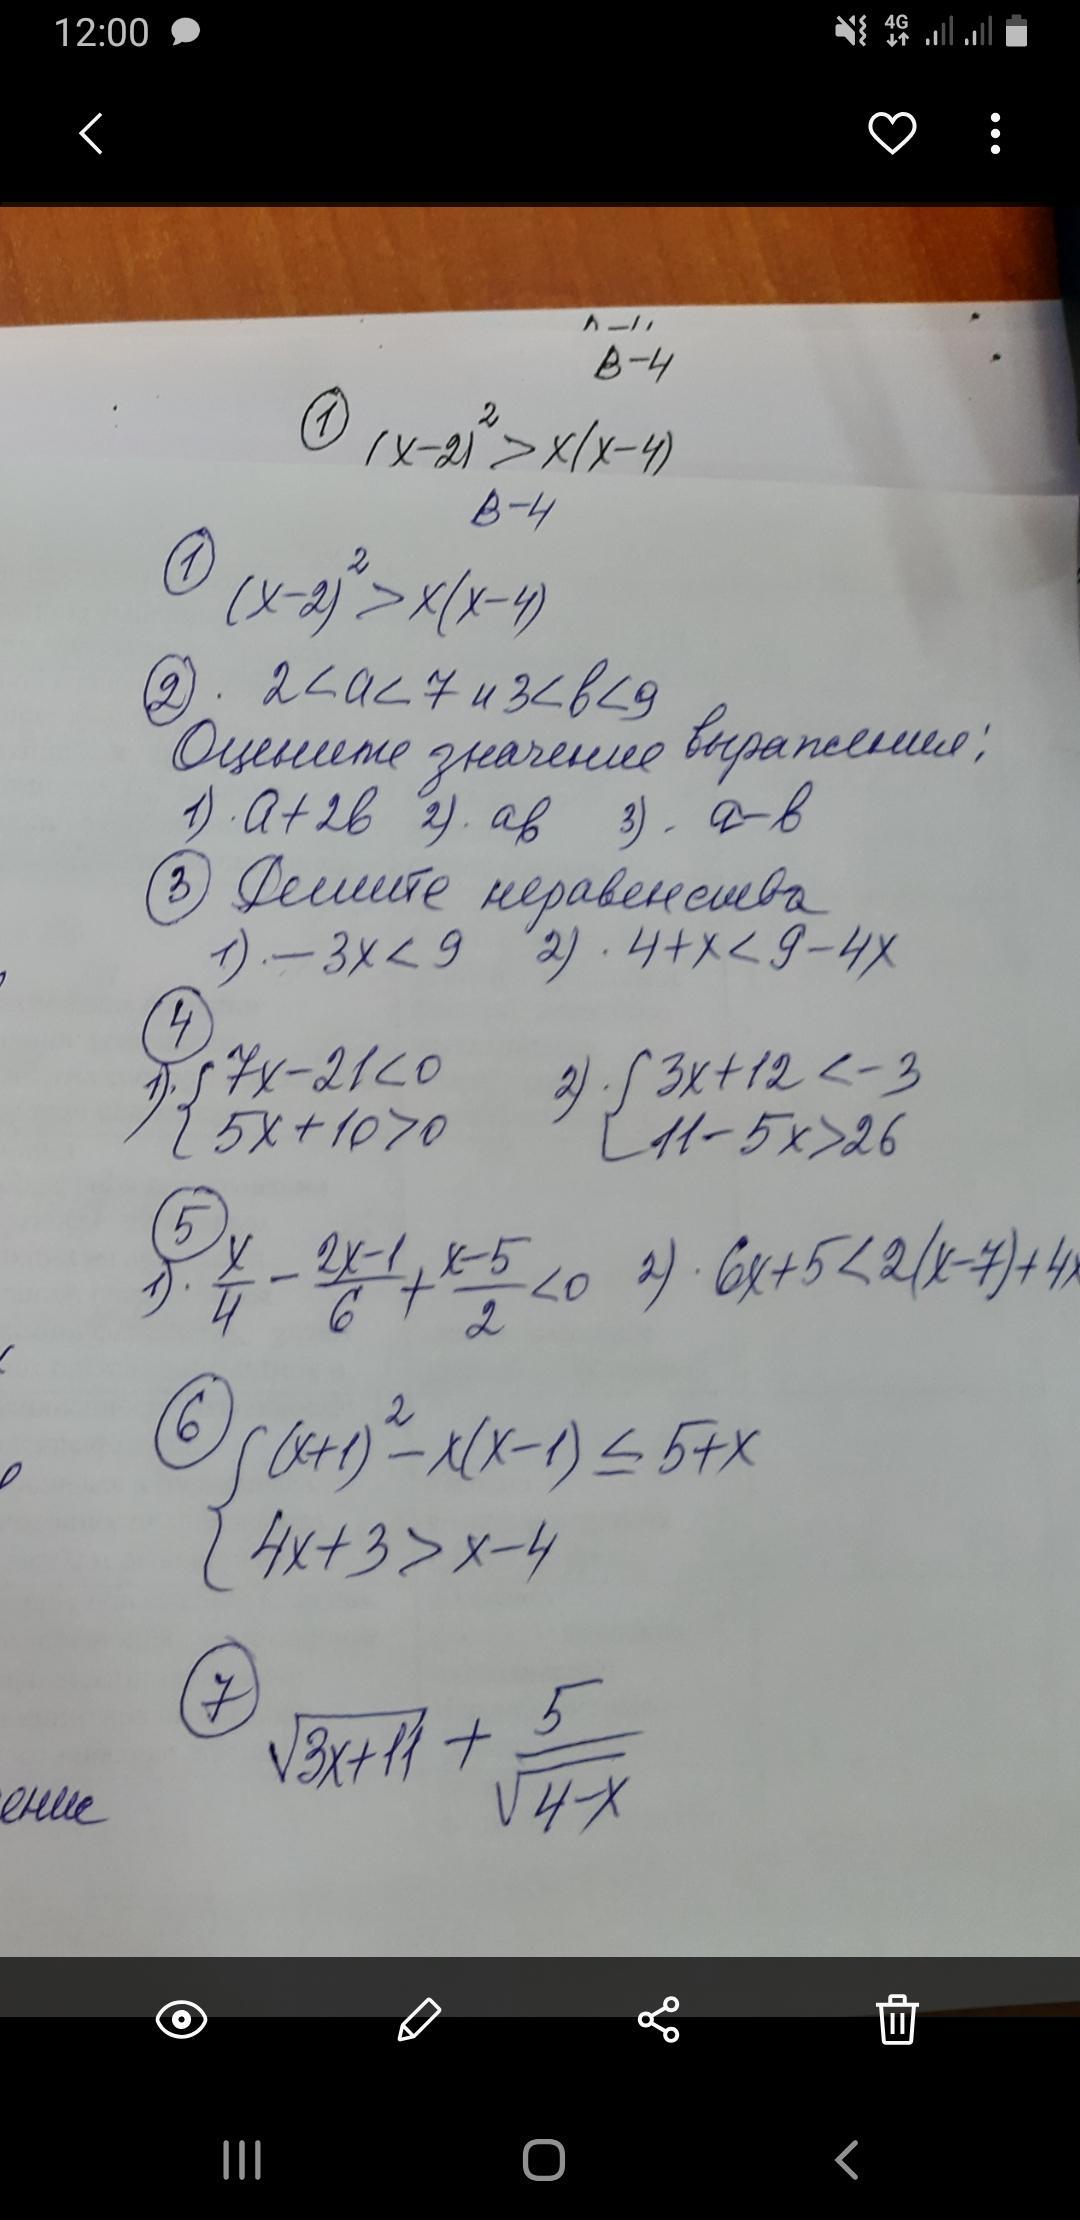 12:00
4G
В-4
① (x-2)² > x(x-4)
В-4
① (x-2)² > x(x-4)
② . 2<a<7 и 3<b<9
Оцените значение выражения:
1). a+2b 2). ab 3). a-b
③ Решите неравенства
1). -3x<9 2). 4+x<9-4x
④
1). { 7x-21<0 2). { 3x+12<-3
{ 5x+10>0 { 11-5x>26
⑤
1). x/4 - (2x-1)/6 + (x-5)/2 <0 2). 6x+5<2(x-7)+4x
⑥ { (x+1)² - x(x-1) ≤ 5+x
{ 4x+3>x-4
⑦ √(3x+11) + 5/√(4-x)
ение